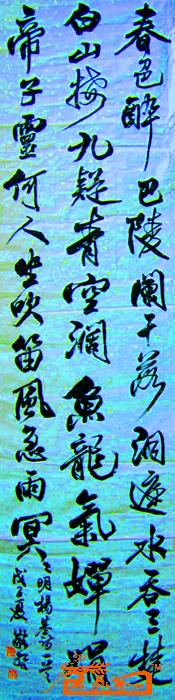 春色醉巴陵闌干落洞庭水吞三楚
白山接九疑青空濶魚龍氣嬋娟
帝子靈何人坐吹笛風急雨冥
々明楊基
戊子夏